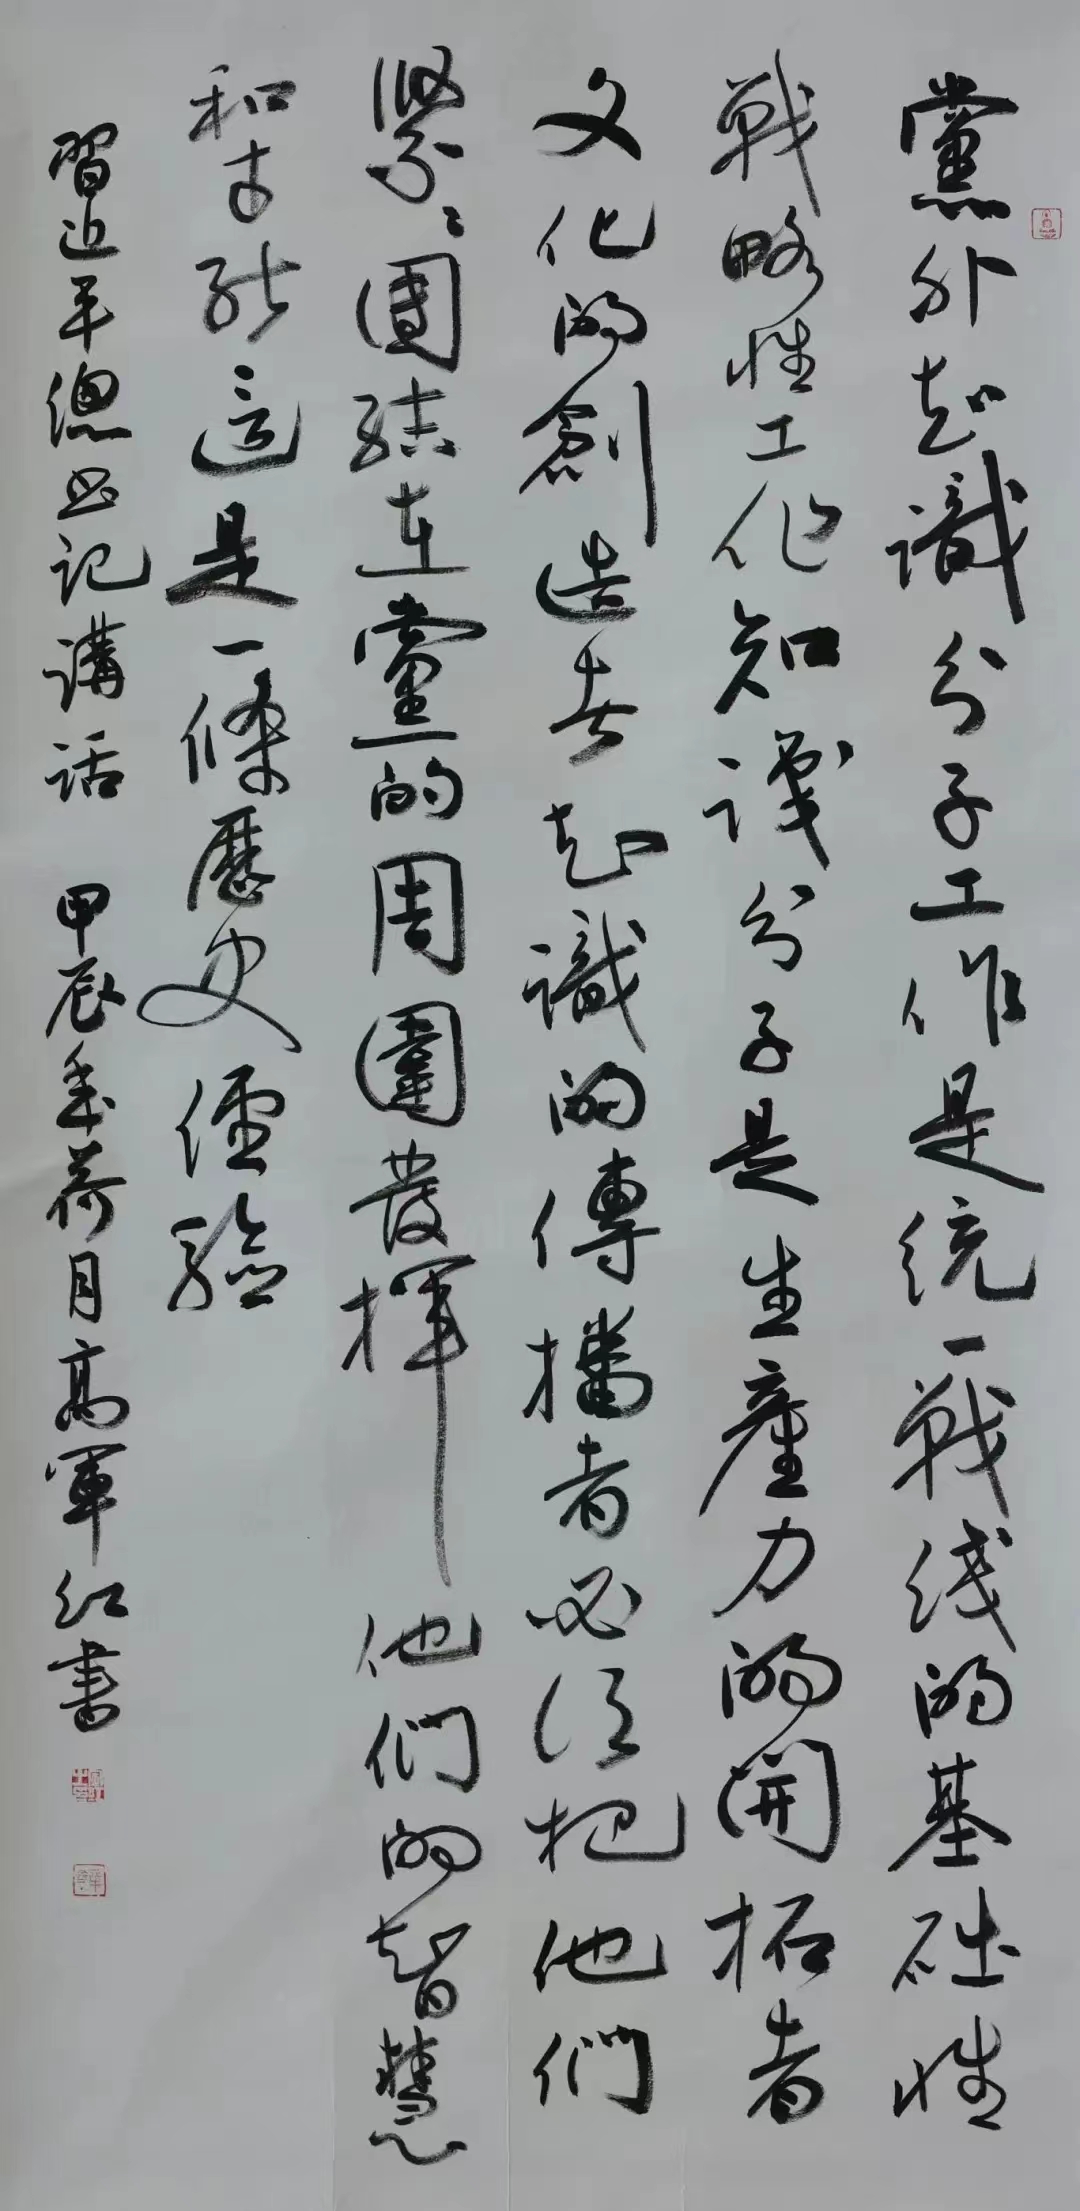 黨外知識分子工作是统一戰线的基础性
戰略性工作知識分子是生產力的開拓者
文化的創造者知識的傳播者必须把他們
緊緊團結在黨的周圍發揮他們的智慧
和才能這是一條歷史經驗
習近平總书记講话 甲辰年荷月高軍红書